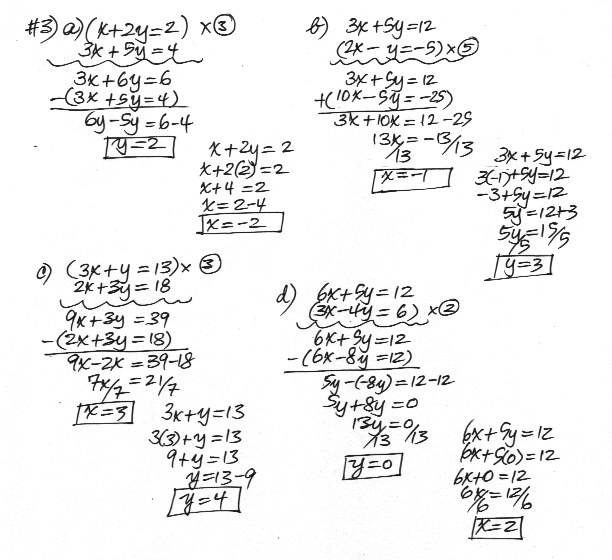 #3) a) (x+2y=2) x③
3x+5y=4
3x+6y=6
-(3x+5y=4)
6y-5y=6-4
y=2
x+2y=2
x+2(2)=2
x+4=2
x=2-4
x=-2
b) 3x+5y=12
(2x-y=-5)x⑤
3x+5y=12
+(10x-5y=-25)
3x+10x=12-25
13x/13=-13/13
x=-1
3x+5y=12
3(-1)+5y=12
-3+5y=12
5y=12+3
5y/5=15/5
y=3
c) (3x+y=13)x③
2x+3y=18
9x+3y=39
-(2x+3y=18)
9x-2x=39-18
7x/7=21/7
x=3
3x+y=13
3(3)+y=13
9+y=13
y=13-9
y=4
d) 6x+5y=12
(3x-4y=6)x②
6x+5y=12
-(6x-8y=12)
5y-(-8y)=12-12
5y+8y=0
13y/13=0/13
y=0
6x+5y=12
6x+5(0)=12
6x+0=12
6x/6=12/6
x=2